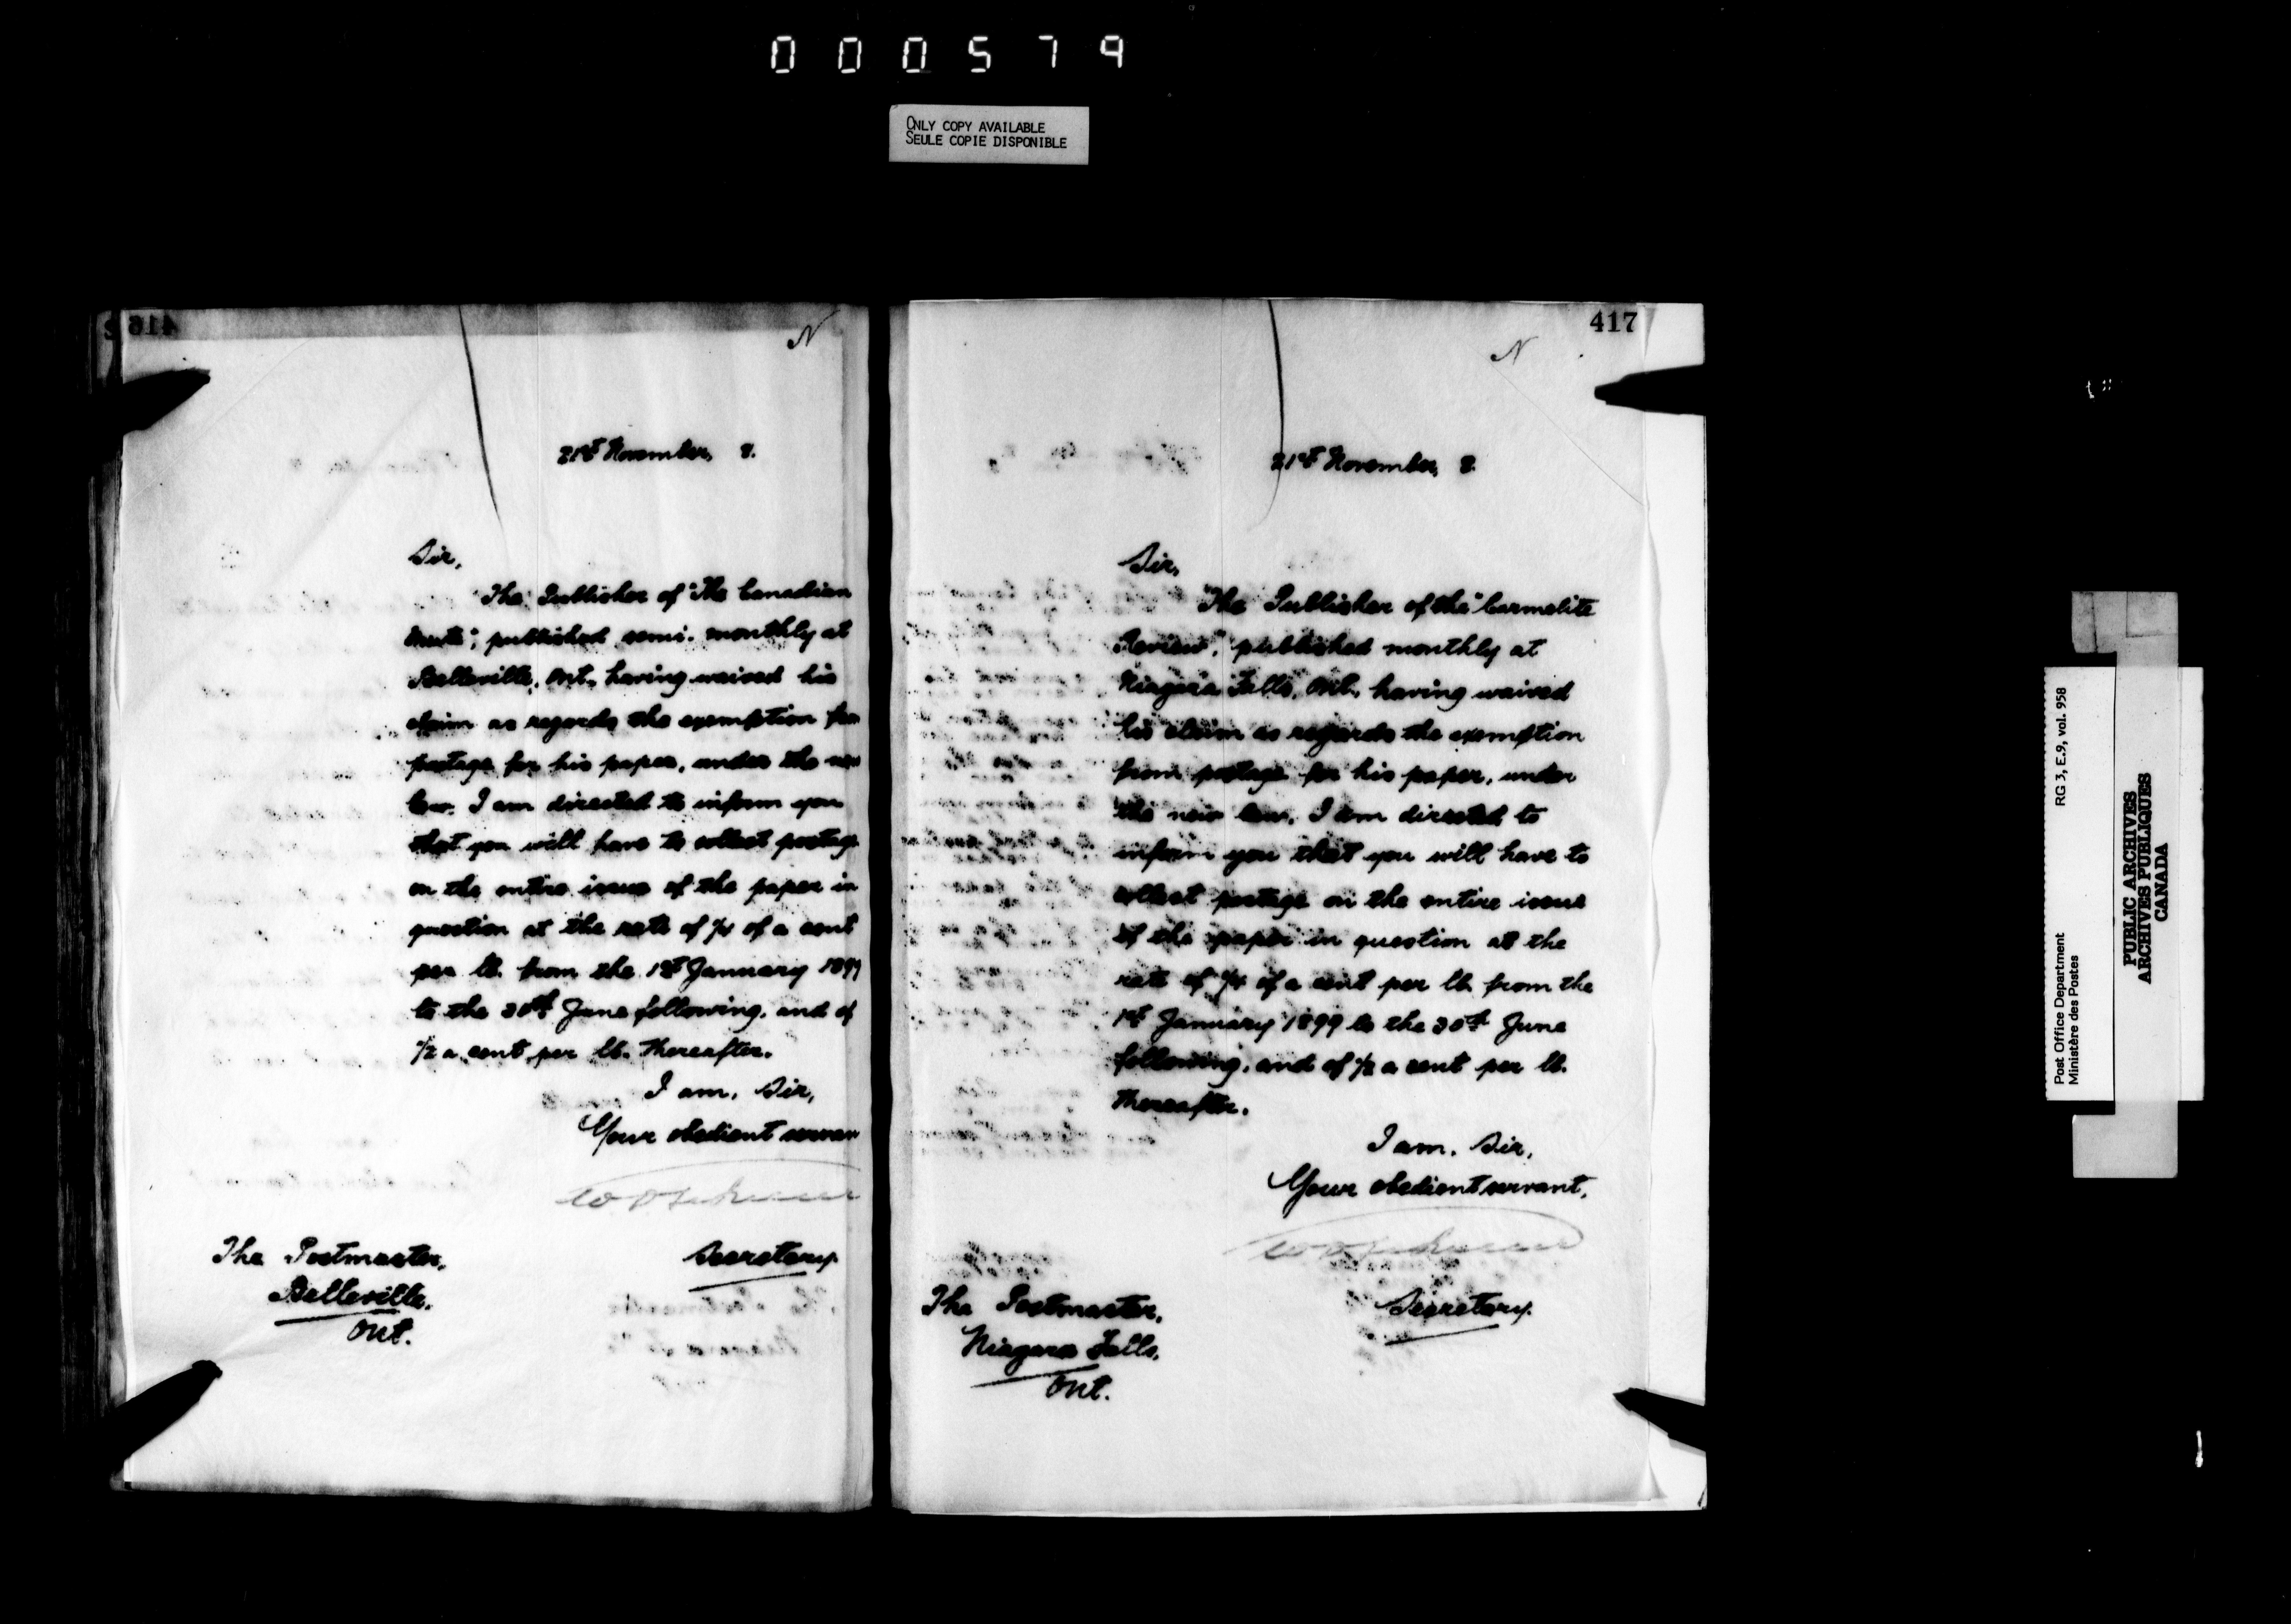 000579
ONLY COPY AVAILABLE
SEULE COPIE DISPONIBLE
416
N
21st November, 8.
Sir,
The Publisher of "The Canadian
Mute", published semi-monthly at
Belleville, Ont., having waived his
claim as regards the exemption from
postage for his paper, under the new
law. I am directed to inform you
that you will have to collect postage
on the entire issue of the paper in
question at the rate of 1/4 of a cent
per lb. from the 1st January 1899
to the 30th June following, and of
1/2 a cent per lb. thereafter.
I am, Sir,
Your obedient servan
Secretary.
The Postmaster,
Belleville,
Ont.
417
N
21st November, 8.
Sir,
The Publisher of the "Carmelite
Review", published monthly at
Niagara Falls, Ont., having waived
his claim as regards the exemption
from postage for his paper, under
the new law. I am directed to
inform you that you will have to
collect postage on the entire issue
of the paper in question at the
rate of 1/4 of a cent per lb. from the
1st January 1899 to the 30th June
following, and of 1/2 a cent per lb.
thereafter.
I am, Sir,
Your obedient servant,
Secretary.
The Postmaster,
Niagara Falls,
Ont.
Post Office Department
Ministère des Postes
RG 3, E.9, vol. 958
PUBLIC ARCHIVES
ARCHIVES PUBLIQUES
CANADA